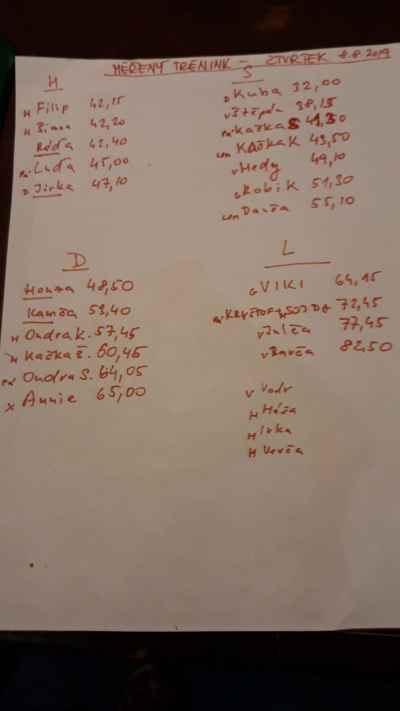 MĚŘENÝ TRENINK - ČTVRTEK 8.8.2019
H
H Filip 42,15
H Šimon 42,20
Ráďa 42,40
Luďa 45,00
D Jirka 47,10
S
D Kuba 32,00
V Štěpča 38,15
Kačka S 41,30
KAčka K 43,50
V Hedy 49,10
G Robik 51,30
Danča 55,10
D
Honza 48,50
Kamča 53,40
H Ondra K. 57,45
H Kačka Š. 60,45
Ondra S. 64,05
X Annie 65,00
L
G VIKI 64,15
KRYŠTOF 72,45
V Julča 77,45
V Barča 82,50
V Vodr
H Háša
H Irka
H Verča